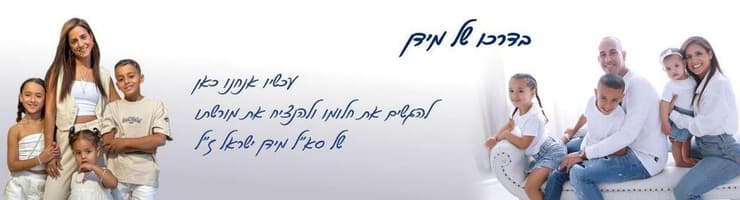 בדרכו של מידן
עכשיו אנחנו כאן
להגשים את חלומו ולהנציח את מורשתו
של סא"ל מידן ישראל ז"ל